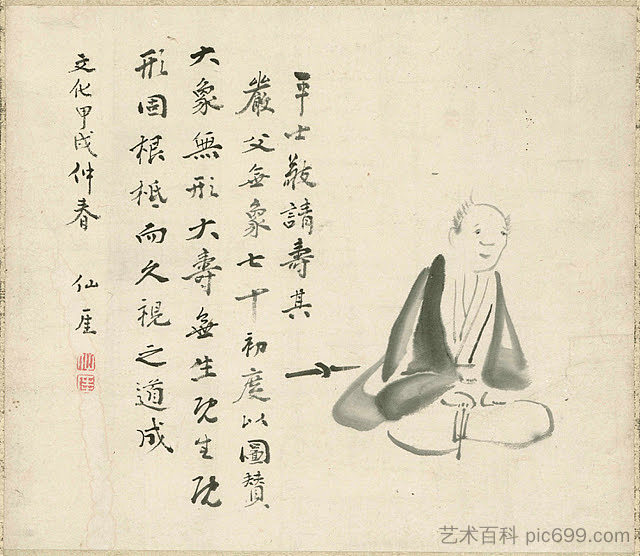 平士敬請壽其
嚴父無象七十初度以圖賛
大象無形大壽無生既生既
形固根柢而久視之道成
文化甲戌仲春 仙厓
艺术百科 pic699.com